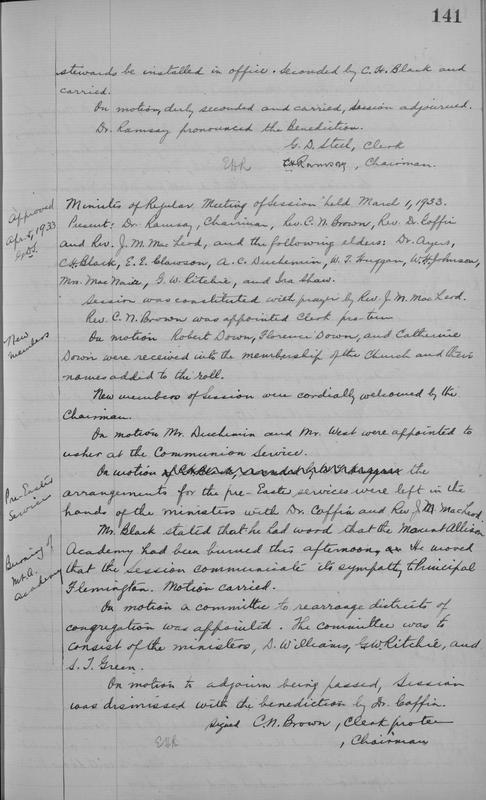 141
stewards be installed in office. Seconded by C. H. Black and
carried.
On motion, duly seconded and carried, session adjourned.
Dr. Ramsay pronounced the Benediction.
G. D. Steel, Clerk
EHR Ramsay, Chairman.
Approved
Apr. 5, 1933
Minutes of Regular Meeting of Session held March 1, 1933.
Present: Dr. Ramsay, Chairman, Rev. C. N. Brown, Rev. Dr. Coffin
and Rev. J. M. MacLeod, and the following elders: Dr. Ayers,
C. H. Black, E. E. Clawson, A. C. Duchemin, W. T. Huggan, W. H. Johnson,
Mrs. MacNair, G. W. Ritchie, and Ira Shaw.
Session was constituted with prayer by Rev. J. M. MacLeod.
Rev. C. N. Brown was appointed Clerk pro-tem
New
members
On motion Robert Down, Florence Down, and Catherine
Down were received into the membership of the Church and their
names added to the roll.
New members of Session were cordially welcomed by the
Chairman.
On motion Mr. Duchemin and Mr. West were appointed to
usher at the Communion Service.
Pre-Easter
Services
On motion the
arrangements for the pre-Easter services were left in the
hands of the ministers with Dr. Coffin and Rev. J. M. MacLeod.
Burning of
Mt. A.
Academy
Mr. Black stated that he had word that the Mount Allison
Academy had been burned this afternoon. He moved
that the Session communicate its sympathy to Principal
Flemington. Motion carried.
On motion a committee to rearrange districts of
congregation was appointed. The committee was to
consist of the ministers, D. Williams, G. W. Ritchie, and
S. T. Green.
On motion to adjourn being passed, Session
was dismissed with the benediction by Dr. Coffin.
Signed C. N. Brown, Clerk pro tem
EHR , Chairman